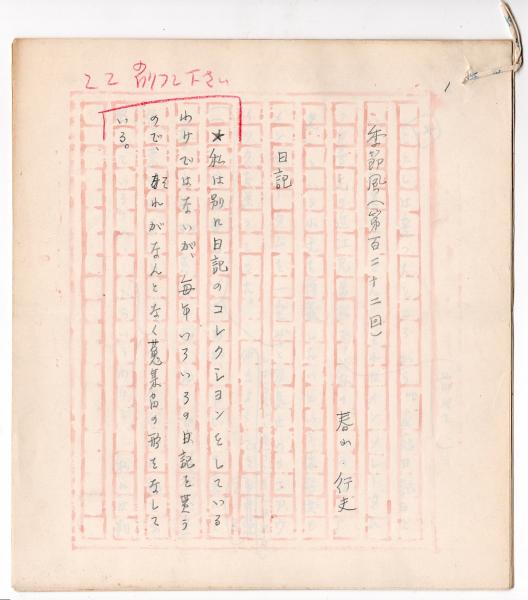 下さい
季節風(第百二十二回)
春山・行夫
日記
★私は別に日記のコレクションをしている
わけではないが、毎年いろいろの日記を買う
ので、それがなんとなく蒐集品の形をなして
いる。